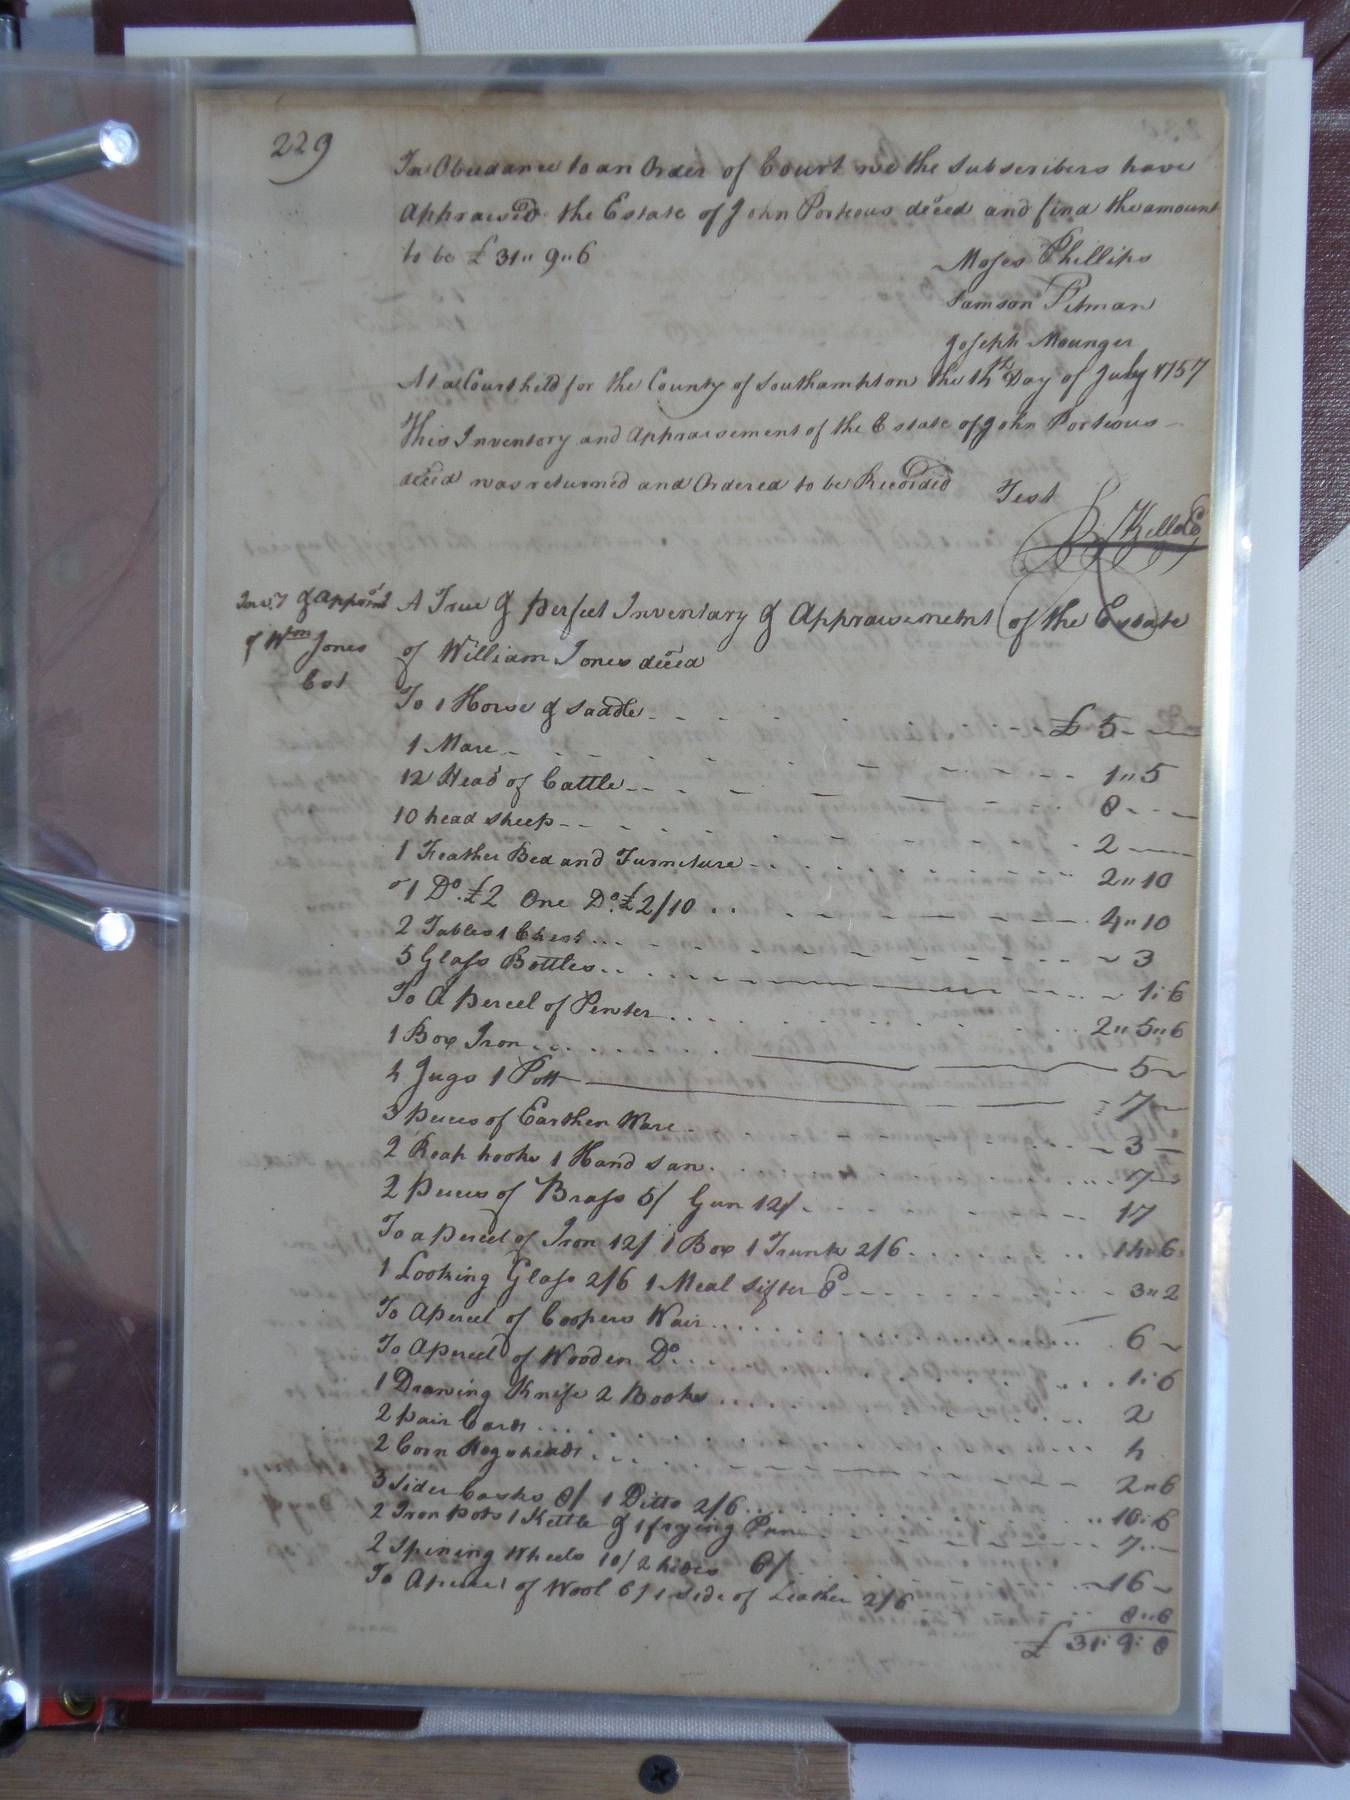 229
In Obeedance to an Order of Court we the Subscribers have
Appraised the Estate of John Porteous deced and find the amount
to be £ 31,, 9,, 6
Moses Phillips
Samson Pitman
Joseph Mounger
At a Court held for the County of Southampton the 14th Day of July 1757
This Inventory and Appraisement of the Estate of John Porteous
deced was returned and Ordered to be Recorded
Test
Kello
Inv:y & Apprmt A True & perfect Inventory & Appraisement of the Estate
of Wm Jones of William Jones deced
Est
To 1 Horse & Saddle £ 5
1 Mare 1,, 5
12 Head of Cattle 8
10 head sheep 2
1 Feather Bed and Furniture 2,, 10
1 Do. £2 One Do. £2/10 4,, 10
2 Tables 1 Chest 3
5 Glass Bottles 1: 6
To A percel of Pewter 2,, 5,, 6
1 Box Iron 5
4 Jugs 1 Pott 7
3 pieces of Earthen Ware 3
2 Reap hooks 1 Hand saw 7
2 pieces of Brass 5/ Gun 12/ 17
To a percel of Iron 12/ 1 Box 1 Trunk 2/6 14,, 6
1 Looking Glass 2/6 1 Meal sifter 8 3,, 2
To A percel of Coopers Wair 6
To A percel of Wooden Do. 1: 6
1 Drawing Knife 2 Books 2
2 pair Cards 4
2 Corn Hogsheads 2,, 6
3 Sider Casks 8/ 1 Ditto 2/6 10: 6
2 Iron pots 1 Kettle & 1 frying Pan 7
2 Spining Wheels 10/ 2 hides 6/ 16
To A percel of Wool 6/ 1 side of Leather 2/6 8,, 6
£ 31: 9: 8